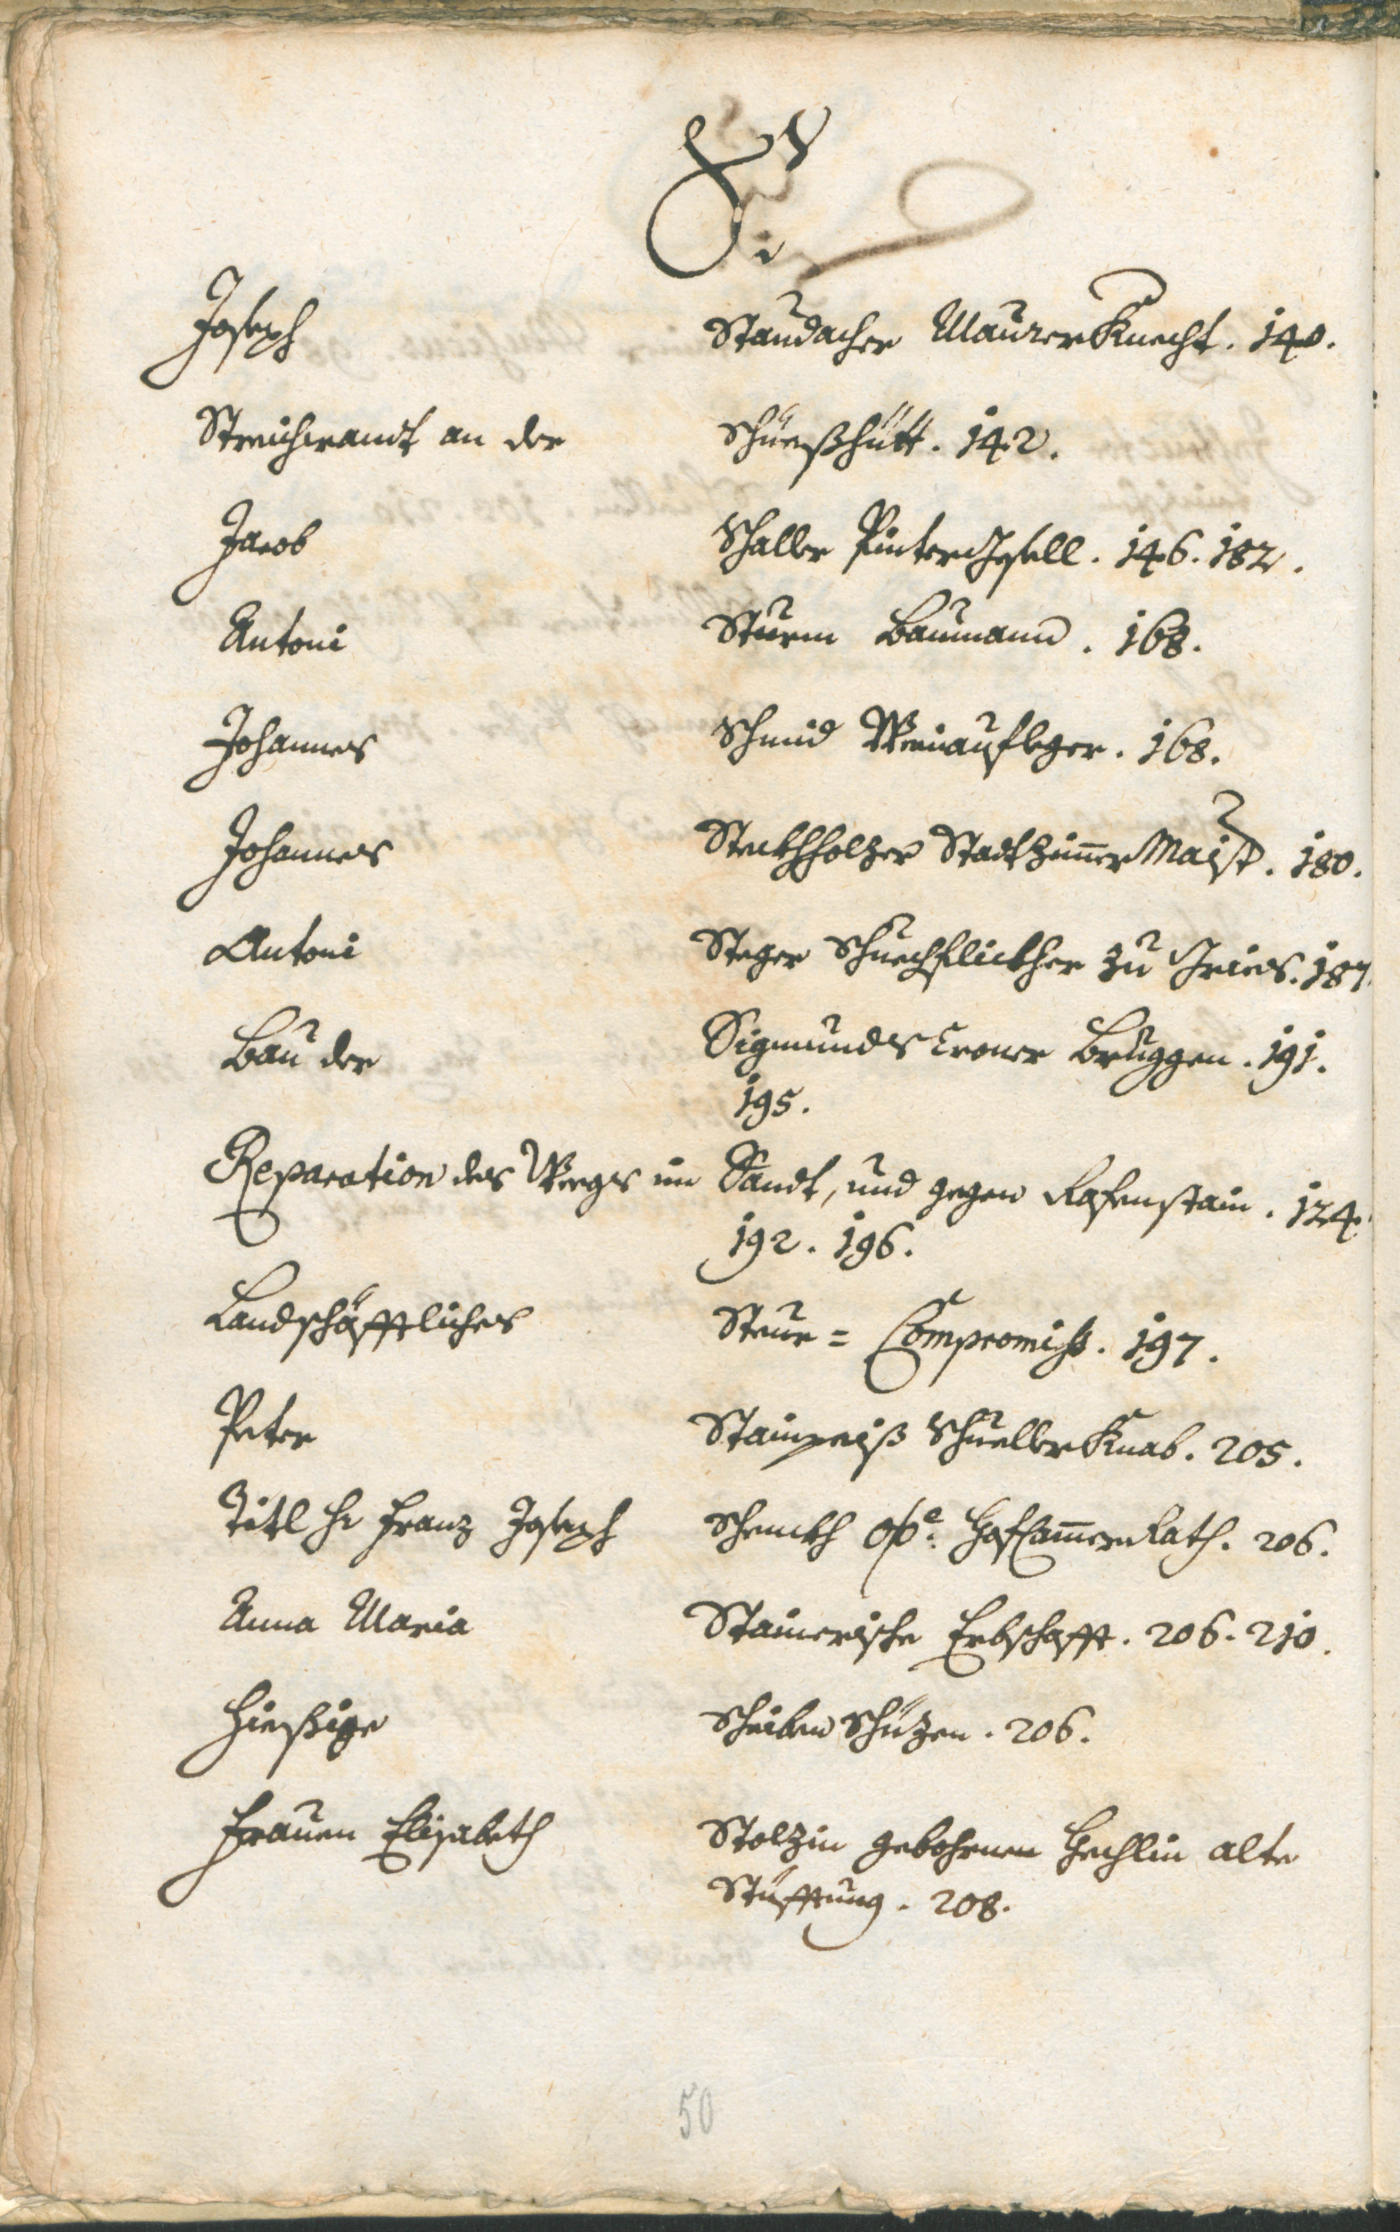 S.
Joseph Staudacher MaurerKnecht. 140.
Streichwandt an der Schüeßhütt. 142.
Jacob Schaller PinterGsell. 146. 182.
Antoni Sturm Baumann. 168.
Johannes Schmid Weinaufleger. 168.
Johannes Steckhholzer Stadtzim̅erMaist. 180.
Antoni Steger Schuechflickher zu Gries. 187.
Bau der Sigmundscroner Bruggen. 191.
195.
Reparation des Weegs im Sandt, und gegen Rafenstain. 124.
192. 196.
Landschäfftliches Steur= Compromiss. 197.
Peter Schuellerknab. 205.
Titl H: Franz Joseph Schenckh HofCam̅erRath. 206.
Anna Maria Stainerische Erbschafft. 206. 210.
Hiesßige Scheiben Schüzen. 206.
Frauen Elisabeth Stolzin gebohrnen Hechlin alte
Stüfftung. 208.
50